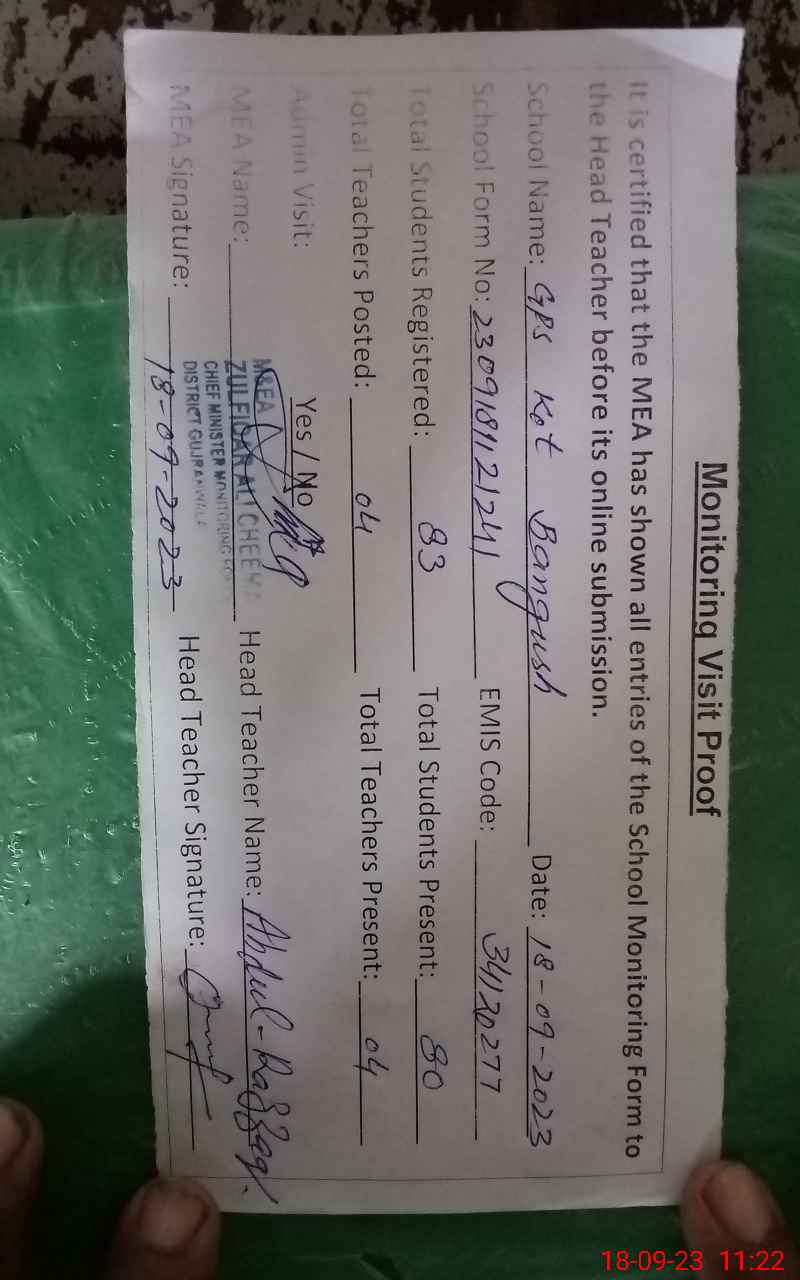 Monitoring Visit Proof
It is certified that the MEA has shown all entries of the School Monitoring Form to
the Head Teacher before its online submission.
School Name: GPS Kot Bangush Date: 18-09-2023
School Form No: 2309181121241 EMIS Code: 34120277
Total Students Registered: 83 Total Students Present: 80
Total Teachers Posted: 04 Total Teachers Present: 04
Admin Visit: Yes / No
M&EA
MEA Name: ZULFIQAR ALI CHEEMA Head Teacher Name: Abdul-Razzaq.
CHIEF MINISTER MONITORING
DISTRICT GUJRANWALA
MEA Signature: 18-09-2023 Head Teacher Signature:
18-09-23 11:22